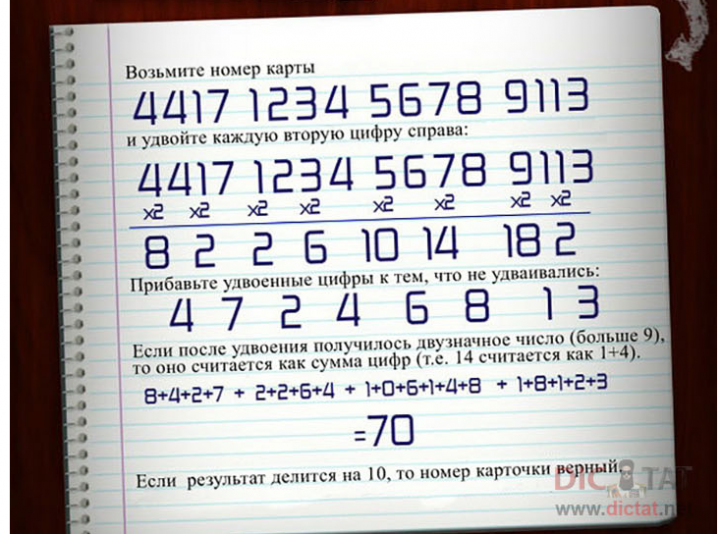 Возьмите номер карты
4417 1234 5678 9113
и удвойте каждую вторую цифру справа:
4417 1234 5678 9113
x2 x2 x2 x2 x2 x2 x2 x2
8 2 2 6 10 14 18 2
Прибавьте удвоенные цифры к тем, что не удваивались:
4 7 2 4 6 8 1 3
Если после удвоения получилось двузначное число (больше 9),
то оно считается как сумма цифр (т.е. 14 считается как 1+4).
8+4+2+7 + 2+2+6+4 + 1+0+6+1+4+8 + 1+8+1+2+3
=70
Если результат делится на 10, то номер карточки верный.
DICTAT
www.dictat.net